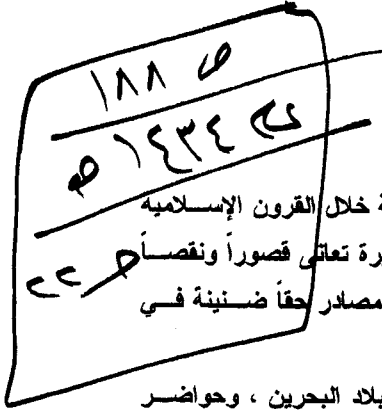 ص ١٨٨
١٤٣٤ هـ
ص ٢٢
ة خلال القرون الإسلامية
رة تعانى قصوراً ونقصاً
مصادر حقاً ضنينة في
بلاد البحرين ، وحواضر